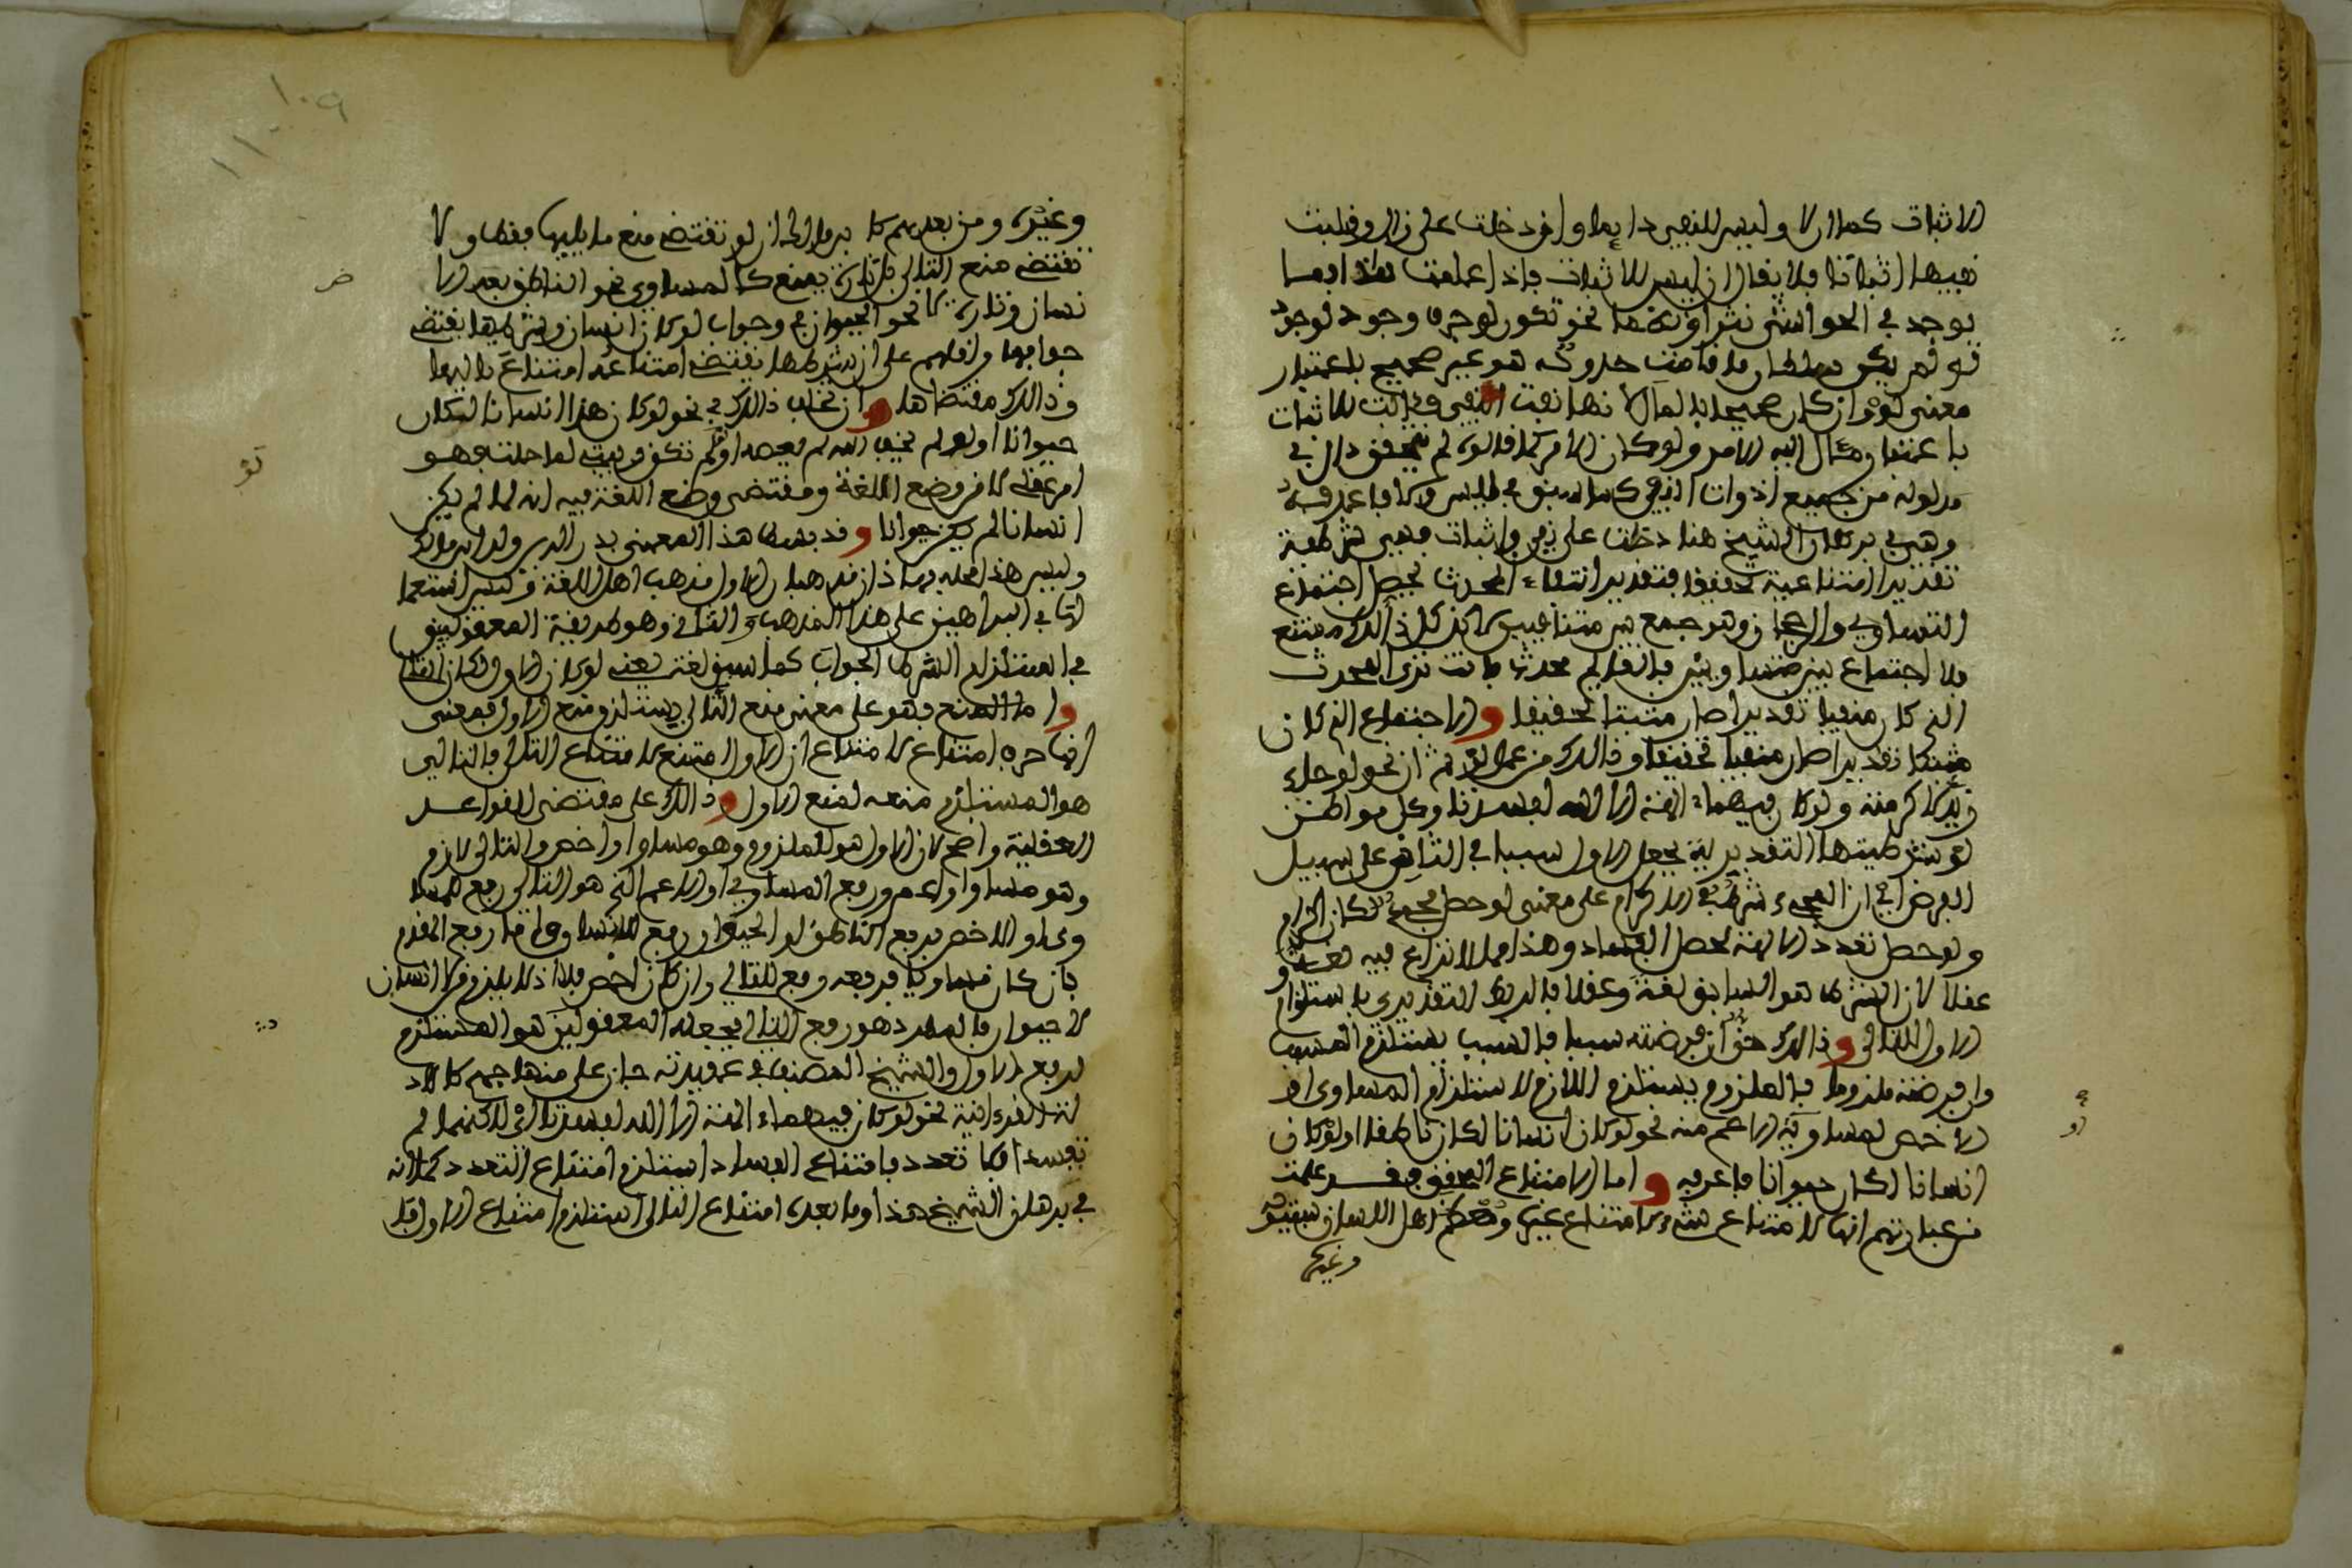 الاثبات كما ان لا وليس للنفي دايما واخر دخلت على زال وقلبت
نفيها اثباتا فلا يقال ان ليس للاثبات فاذا علمت هذا فما
يوجد في الحواشي نثرا ونظما نحو تكون لو حرف وجود لوجود
هو غير صحيح باعتبار
معنى لو وان كان صحيحا بالمآل لانها نفت النفي فئالت للاثبات
باعتبار مئال اليه الامر ولو كان الامر كما قالوه لم يتحقق دال في
مدلوله من جميع ادوات النفي كما سبق في ليس ولا فاعرفه
وهي في برهان الشيخ هنا دخلت على نفي واثبات فهي شرطية
تقديرا امتناعية تحقيقا فتقدير انتفاء المحدث يحصل اجتماع
التساوي والرجحان وهو جمع بين متنافيين لاكن كل ذالك ممتنع
فلا اجتماع بين متساويين
الذي كان منفيا تقديرا صار مثبتا تحقيقا والاجتماع الذي كان
مثبتا تقديرا صار منفيا تحقيقا وذالك من عمل لو ثم ان نحو لو جاء
زيد لاكرمته ولو كان فيهما ءالهة الا الله لفسدتا وكل مواطن
لو شرطيتها التقديرية يجعل الاول سببا في الثاني على سبيل
الفرض اي ان المجيء شرط في الاكرام على معنى لو حصل مجيء لكان اكرام
ولو حصل تعدد الالهة لحصل الفساد وهذا مما لا نزاع فيه لغة و
عقلا لان الشرط هو السابق لغة وعقلا فالربط التقديري باستلزام
الاول للثاني وذالك حق ان فرضته سببا فالسبب يستلزم المسبب
وان فرضته ملزوما فالملزوم يستلزم اللازم لاستلزام المساوي او
الاخص لمساويه او الاعم منه نحو لو كان انسانا لكان ناطقا او لو كان
انسانا لكان حيوانا فاعرفه واما الامتناع فقد علمت
من عبارتهم انها لامتناع شيء لامتناع غيره ومعظم اهل اللسان سيبويه
وغيره
وغيره ومن بعدهم كابن مالك ان لو تقتضي منع ما يليها فقط ولا
تقتضي منع التالي بل تارة يمنع كالمساوي نحو الناطق بعد الا
نسان وتارة لا نحو الحيوان في وجواب لو كان انسان وشرطيها يقتضي
جوابها واقلهم على ان شرطها يقتضي امتناعه امتناع تاليها
وذالك مقتضاها وان تخلف ذالك في نحو لو كان هذا انسانا لكان
حيوانا او لو لم يخف الله لم يعصه او لو لم تكن ربيبتي لما حلت فهو
امر عقلي لا من وضع اللغة ومقتضى وضع اللغة فيه انه لما لم يكن
انسانا لم يكن حيوانا وقد بسط هذا المعنى بدر الدين ولد ابن مالك
وليس هذا محله فهاذان مذهبان الاول مذهب اهل اللغة وليس استعما
لنا في البراهين على هذا المذهب والثاني وهو طريقة المعقوليين
في استلزام الشرط الجواب كما سبق لغة يعني لو كان الاول لكان الثاني
واما المنع فهو على معنى منع التالي يستلزم منع الاول فمعنى
انها حرف امتناع لامتناع ان الاول امتنع لامتناع التالي فالتالي
هو المستلزم منعه لمنع الاول وذالك على مقتضى القواعد
العقلية واضح لان الاول هو الملزوم وهو مساو او اخص والتالي لازم
وهو مساو او اعم ورفع المساوي او الاعم الذي هو التالي رفع للمسا
وي او الاخص فرفع الناطق او الحيوان رفع للانسان واما رفع المقدم
فان كان مساويا فرفعه رفع للتالي وان كان اخص فلا اذ لا يلزم من لا انسان
لا حيوان فالمطرد هو رفع التالي فجعله المعقوليين هو المستلزم
لرفع الاول والشيخ المصنف في عقيدته جاز على منهاجهم كالاد
لة القرءانية نحو لو كان فيهما ءالهة الا الله لفسدتا اي لاكنهما لم
تفسدا فلا تعدد فامتناع الفساد استلزم امتناع التعدد كما انه
في برهان الشيخ هذا وما بعده امتناع التالي استلزم امتناع الاول